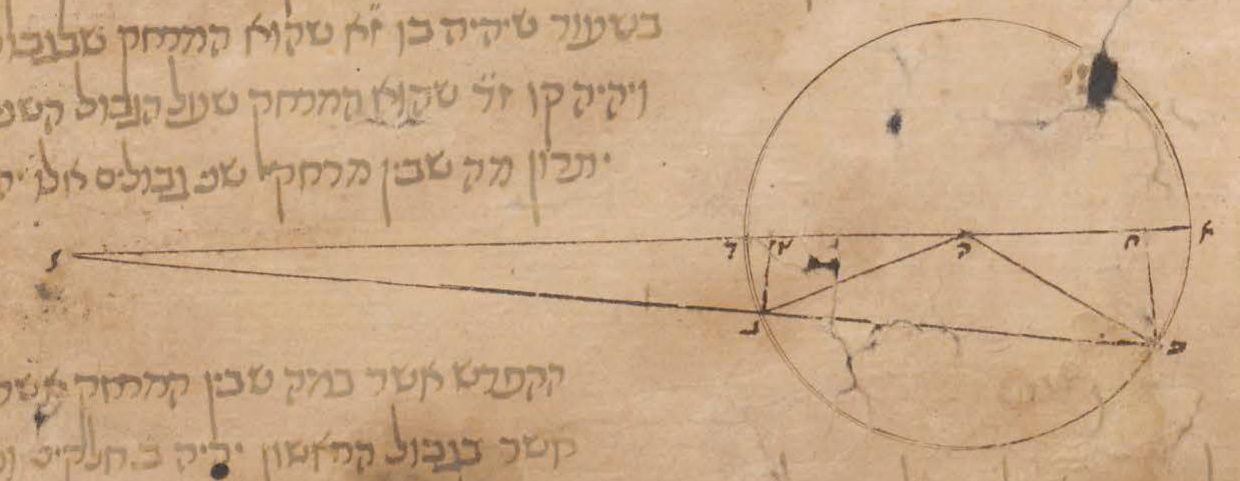 בשעור שיהיה בן ז״א שהוא המרחק שבגבול
ויהיה קו ז״ד שהוא המרחק שעל הגבול השני
יתרון מה שבין מרחקי שני גבולים אלו
ז
ד
ה
ח
א
ג
ב
ההפרש אשר במה שבין המרחק אשר
אשר בגבול הראשון יהיה ב חלקים